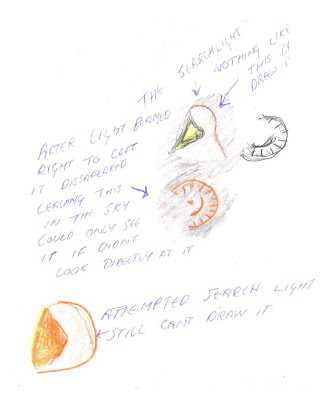 THE SEARCHLIGHT
NOTHING LIKE
THIS
DRAW
AFTER LIGHT BEAMED
RIGHT TO LEFT
IT DISSAPEARED
LEAVING THIS
IN THE SKY
COULD ONLY SEE
IT IF DIDNT
LOOK DIRECTLY AT IT
ATTEMPTED SEARCH LIGHT
STILL CANT DRAW IT